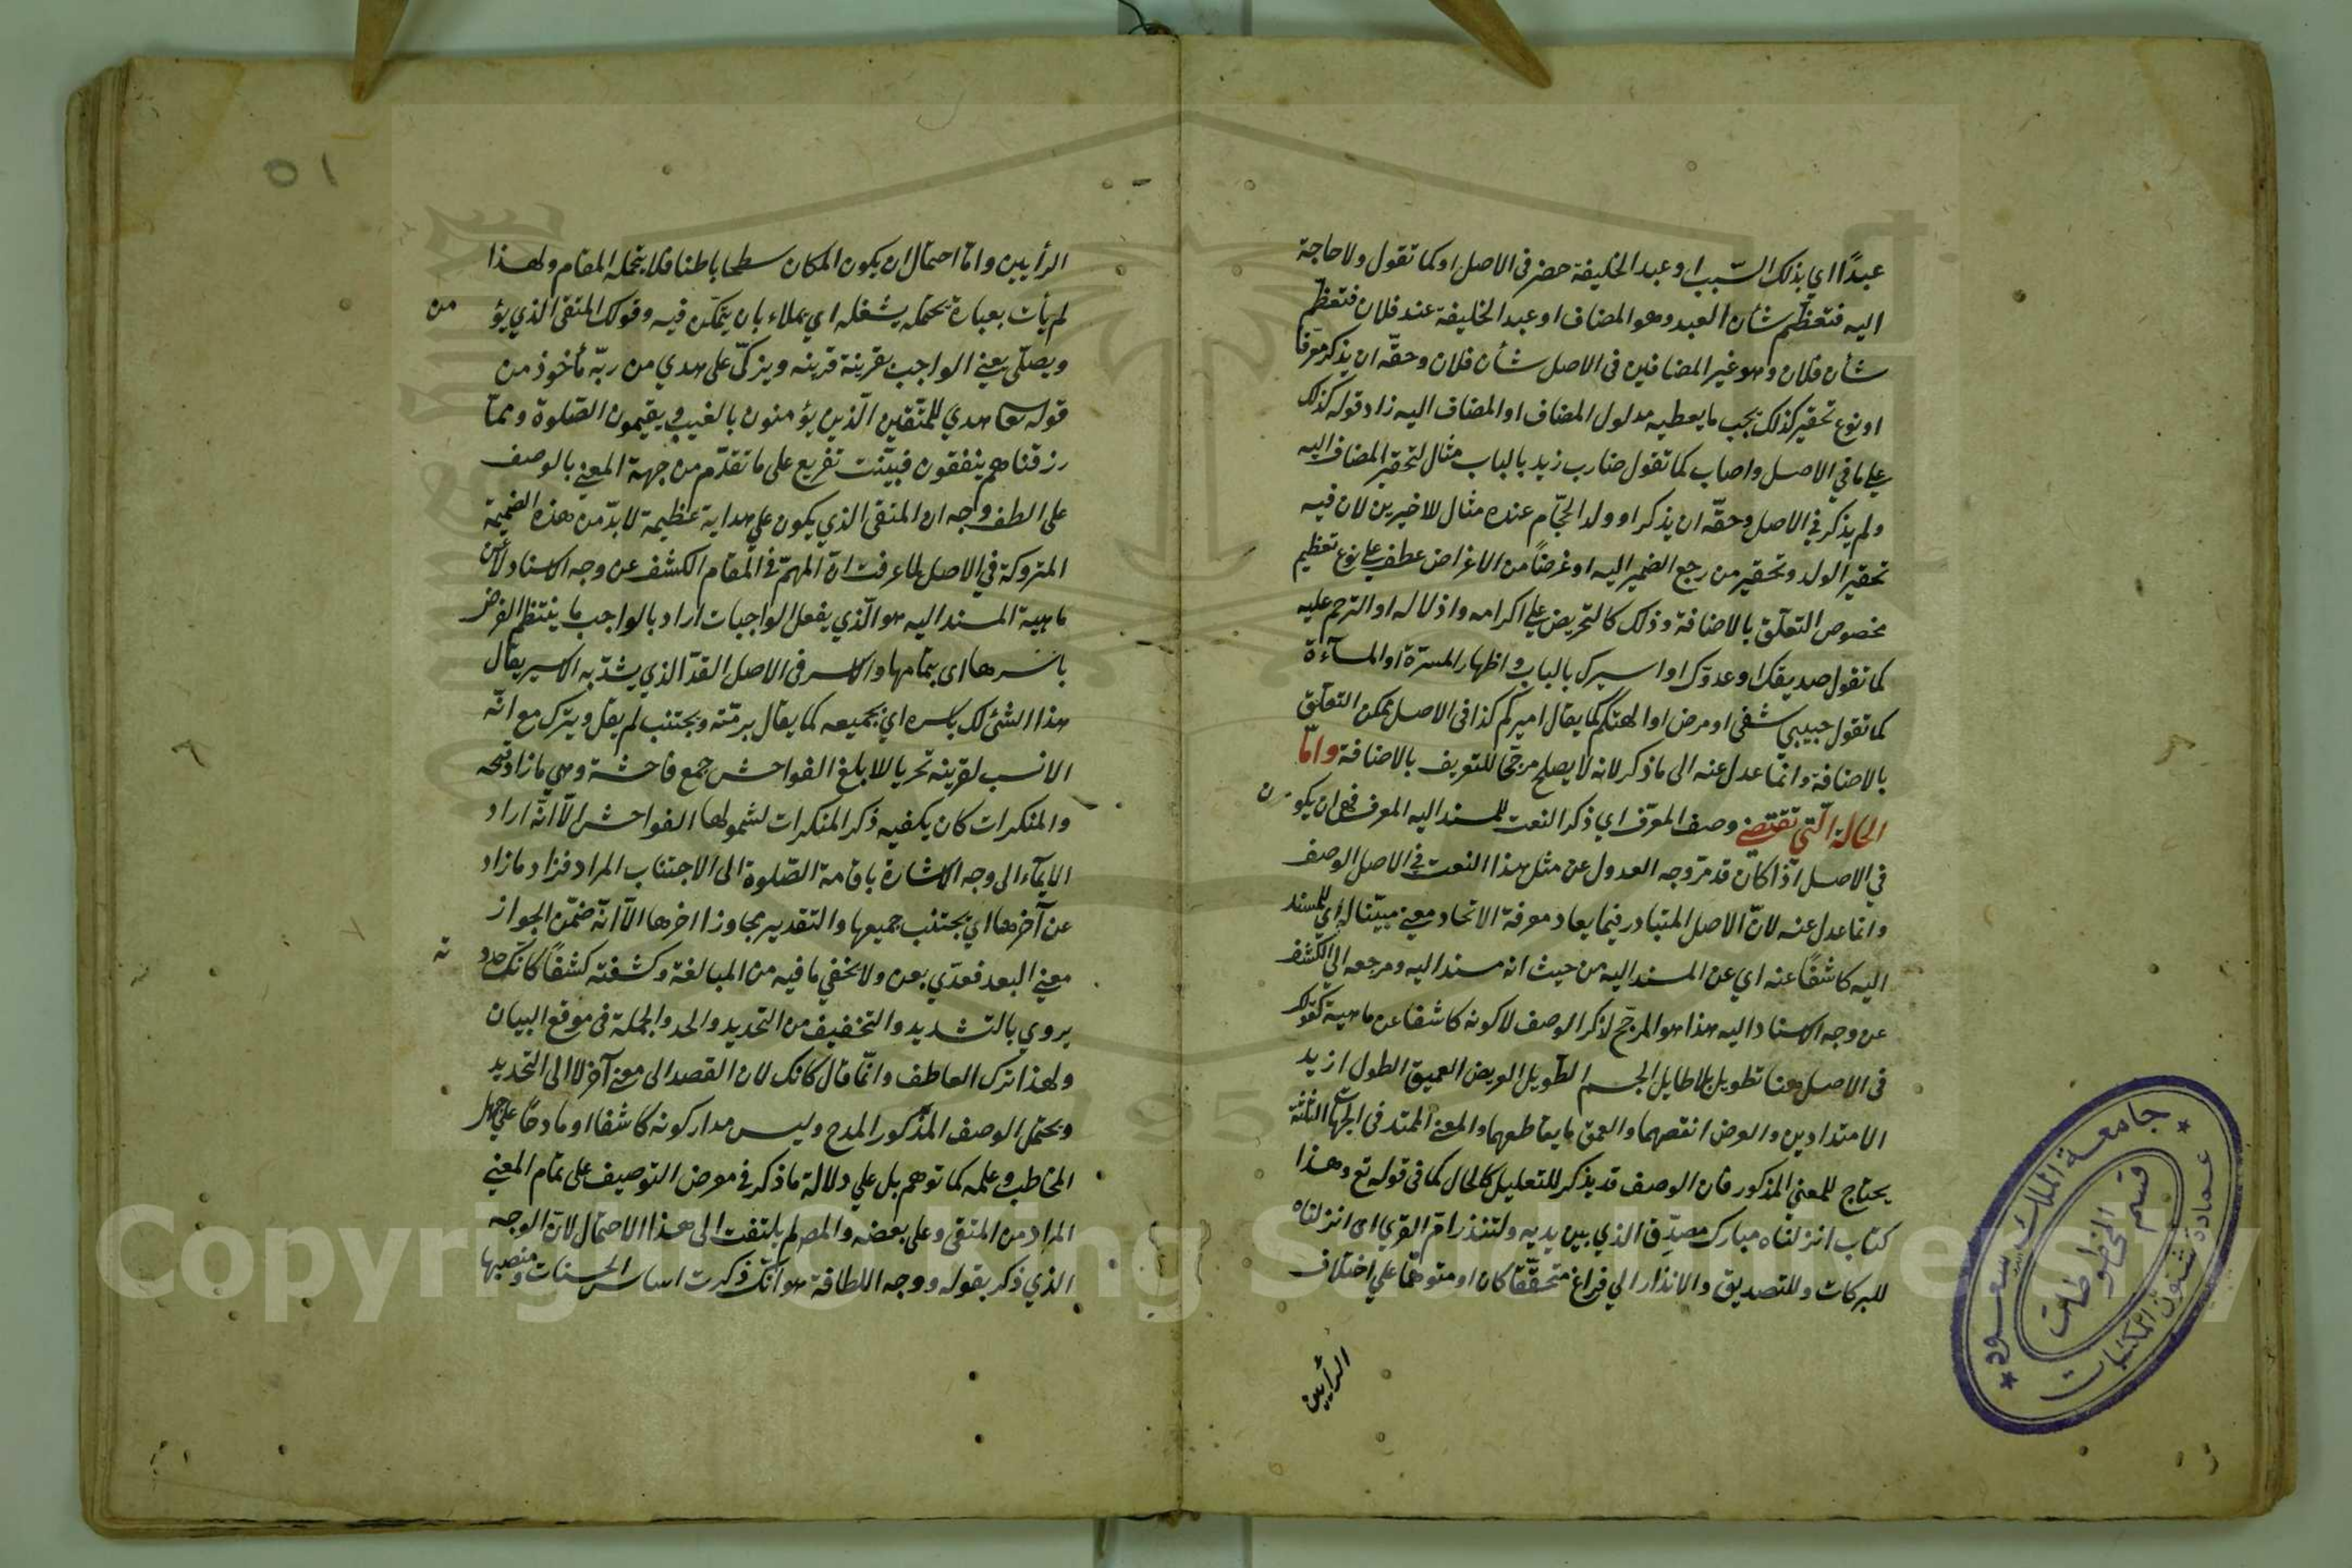 عبدًا اي بذلك السبب او عبد الخليفة حضر في الاصل او كما تقول ولا حاجة
اليه فتعظم شأن العبد وهو المضاف او عبد الخليفة عند فلان فتعظم
شأن فلان وهو غير المضافين في الاصل شأن فلان وحقه ان يذكر معرفا
او نوع تحقير كذلك يجب ما يعطيه مدلول المضاف او المضاف اليه زاد قوله كذلك
علي ما في الاصل واصاب كما تقول ضارب زيد بالباب مثال لتحقير المضاف اليه
ولم يذكر في الاصل وحقّه ان يذكر او ولد الحجّام عنده مثال للاخيرين لان فيه
تحقير الولد وتحقير من رجع الضمير اليه او غرضًا من الاغراض عطف علي نوع تعظيم
مخصوص التعلّق بالاضافة وذلك كالتحريض علي اكرامه واذلاله او الترحم عليه
كما تقول صديقك او عدوّك او اسيرك بالباب واظهار المسرّة او المسآءة
كما تقول حبيبي شفي او مرض او التهكم كما يقال اميركم كذا في الاصل يمكن التعلّق
بالاضافة وانّما عدل عنه الى ما ذكر لانه لا يصلح مرجّحًا للتعريف بالاضافة وامّا
الحالة الّتي تقتضي وصف المعرّف اي ذكر النعت للمسند اليه المعرف فهي ان يكون
في الاصل اذا كان قد مرّ وجه العدول عن مثل هذا النعت في الاصل الوصف
وانما عدل عنه لانّ الاصل المتبادر فيما يعاد معرفة الاتحاد معني مبيّنا له اي للمسند
اليه كاشفًا عنه اي عن المسند اليه من حيث انه مسند اليه ومرجعه الي الكشف
عن وجه الاسناد اليه هذا هو المرجّح لذكر الوصف لا كونه كاشفا عن ماهيته كقولك
في الاصل هنا تطويل بلا طايل الجسم الطويل العريض العميق الطول ازيد
الامتدادين والعرض انقصهما والعمق ما يقاطعهما والمعني الممتد في الجهات الثلثة
يحتاج للمعني المذكور فان الوصف قد يذكر للتعليل كالحال كما في قوله تع وهذا
كتاب انزلناه مبارك مصدّق الذي بين يديه ولتنذر امّ القري اى انزلناه
للبركات وللتصديق والانذار الي فراغ متحقّقًا كان او متوهمًا علي اختلاف
الرأيين
٥١
الرأيين وامّا احتمال ان يكون المكان سطحا باطنا فلا يتحمله المقام ولهذا
لم يأت بعبارة تحتمله يشغله اي يملاء بان يتمكّن فيه وقولك المتقي الذي يؤمن
ويصلّي يعني الواجب بقرينة قرينه ويزكّي على هدي من ربّه مأخوذ من
قوله تعا هدي للمتّقين الّذين يؤمنون بالغيب ويقيمون الصّلوة وممّا
رزقناهم ينفقون فبيّنت تفريع على ما تقدّم من جهة المعني بالوصف
على الطف وجه ان المتقي الذي يكون علي هداية عظيمة لا بدّ من هذه الضميمة
المتروكة في الاصل لما عرفت انّ المهمّ في المقام الكشف عن وجه الاسناد لا عن
ماهية المسند اليه هو الّذي يفعل الواجبات اراد بالواجب ما ينتظم الفرض
باسرها اى بتمامها والاسر في الاصل القدّ الذي يشدّ به الاسير يقال
هذا الشئ لك باسره اي بجميعه كما يقال برمّته ويجتنب لم يقل ويترك مع انّه
الانسب لقرينه تحريا للابلغ الفواحش جمع فاحشة وهي ما زاد قبحه
والمنكرات كان يكفيه ذكر المنكرات لشمولها الفواحش الّا انّه اراد
الايمآء الى وجه الاشارة باقامة الصّلوة الى الاجتناب المراد فزاد ما زاد
عن آخرها اي يجتنب جميعها والتقدير مجاوزا اخرها الّا انّه ضمّن الجواز
معني البعد فعدّي بعن ولا يخفي ما فيه من المبالغة وكشفته كشفًا كانّك حددته
يروي بالتشديد والتخفيف من التحديد والحد والجملة في موقع البيان
ولهذا ترك العاطف وانّما قال كانك لان القصد الى معني آخر لا الى التحديد
ويحتمل الوصف المذكور المدح وليس مدار كونه كاشفا او مادحًا علي جهل
المخاطب وعلمه كما توهم بل علي دلالة ما ذكر في معرض التوصيف على تمام المعني
المراد من المتقي وعلى بعضه والمص لم يلتفت الى هذا الاحتمال لانّ الوجه
الذي ذكر بقوله ووجه اللطافة هو انّك ذكرت اساس الحسنات ومنصبها
جامعة الملك سعود
قسم المخطوطات
عمادة شئون المكتبات
Copyright © King Saud University